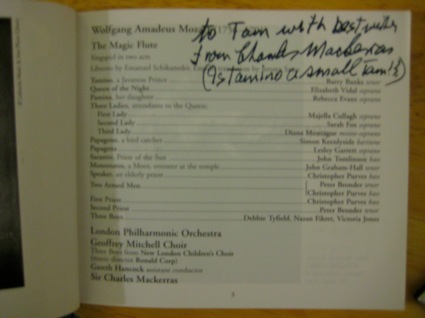 to Tam with best wishes
from Charles Mackerras
(Is tamino a small Tam?)
Wolfgang Amadeus
The Magic Flute
Singspiel in two acts
Libretto by Emanuel Schikaneder,
Tamino, a Javanese Prince Barry Banks tenor
Queen of the Night Elizabeth Vidal soprano
Pamina, her daughter Rebecca Evans soprano
Three Ladies, attendants to the Queen:
First Lady Majella Cullagh soprano
Second Lady Sarah Fox soprano
Third Lady Diana Montague mezzo-soprano
Papageno, a bird catcher Simon Keenlyside baritone
Papagena Lesley Garrett soprano
Sarastro, Priest of the Sun John Tomlinson bass
Monostatos, a Moor, servant at the temple John Graham-Hall tenor
Speaker, an elderly priest Christopher Purves bass
Two Armed Men Peter Bronder tenor
Christopher Purves bass
First Priest Christopher Purves bass
Second Priest Peter Bronder tenor
Three Boys Debbie Tyfield, Nazan Fikret, Victoria Jones
London Philharmonic Orchestra
Geoffrey Mitchell Choir
Three Boys from New London Children's Choir
(music director Ronald Corp)
Gareth Hancock assistant conductor
Sir Charles Mackerras
3